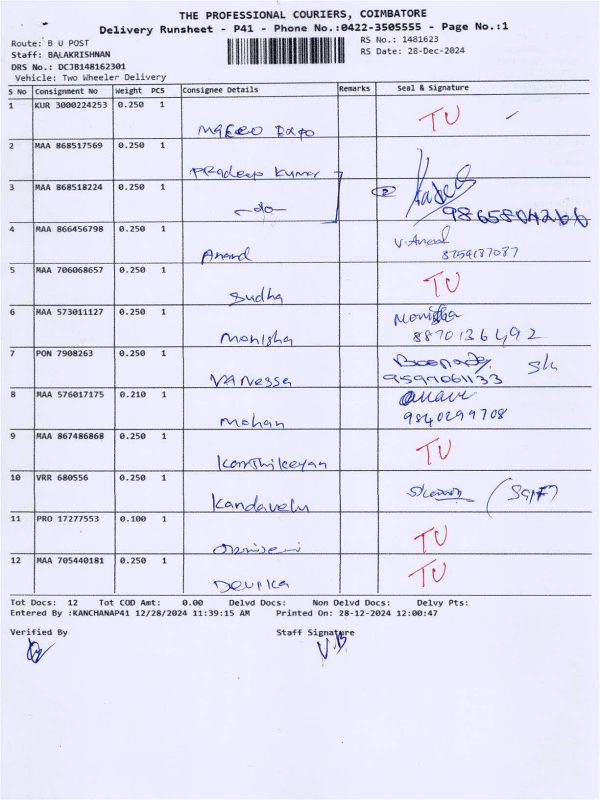 THE PROFESSIONAL COURIERS, COIMBATORE
Delivery Runsheet - P41 - Phone No.:0422-3505555 - Page No.:1
Route: B U POST RS No.: 1481623
Staff: BALAKRISHNAN RS Date: 28-Dec-2024
DRS No.: DCJB148162301
Vehicle: Two Wheeler Delivery
S No Consignment No Weight PCS Consignee Details Remarks Seal & Signature
1 KUR 3000224253 0.250 1 TU
Expo
2 MAA 868517569 0.250 1
Pradeep Kumar
3 MAA 868518224 0.250 1
-do- 9865804266
4 MAA 866456798 0.250 1 V. Anand
Anand 8754187087
5 MAA 706068657 0.250 1 TU
Sudha
6 MAA 573011127 0.250 1 Monisha
Monisha 8870136492
7 PON 7908263 0.250 1
Vanessa 9597061133
8 MAA 576017175 0.210 1
Mohan 9840299708
9 MAA 867486868 0.250 1 TU
Karthikeyan
10 VRR 680556 0.250 1
Kandavelu
11 PRO 17277553 0.100 1 TU
12 MAA 705440181 0.250 1 TU
Devika
Tot Docs: 12 Tot COD Amt: 0.00 Delvd Docs: Non Delvd Docs: Delvy Pts:
Entered By :KANCHANAP41 12/28/2024 11:39:15 AM Printed On: 28-12-2024 12:00:47
Verified By Staff Signature
V.B